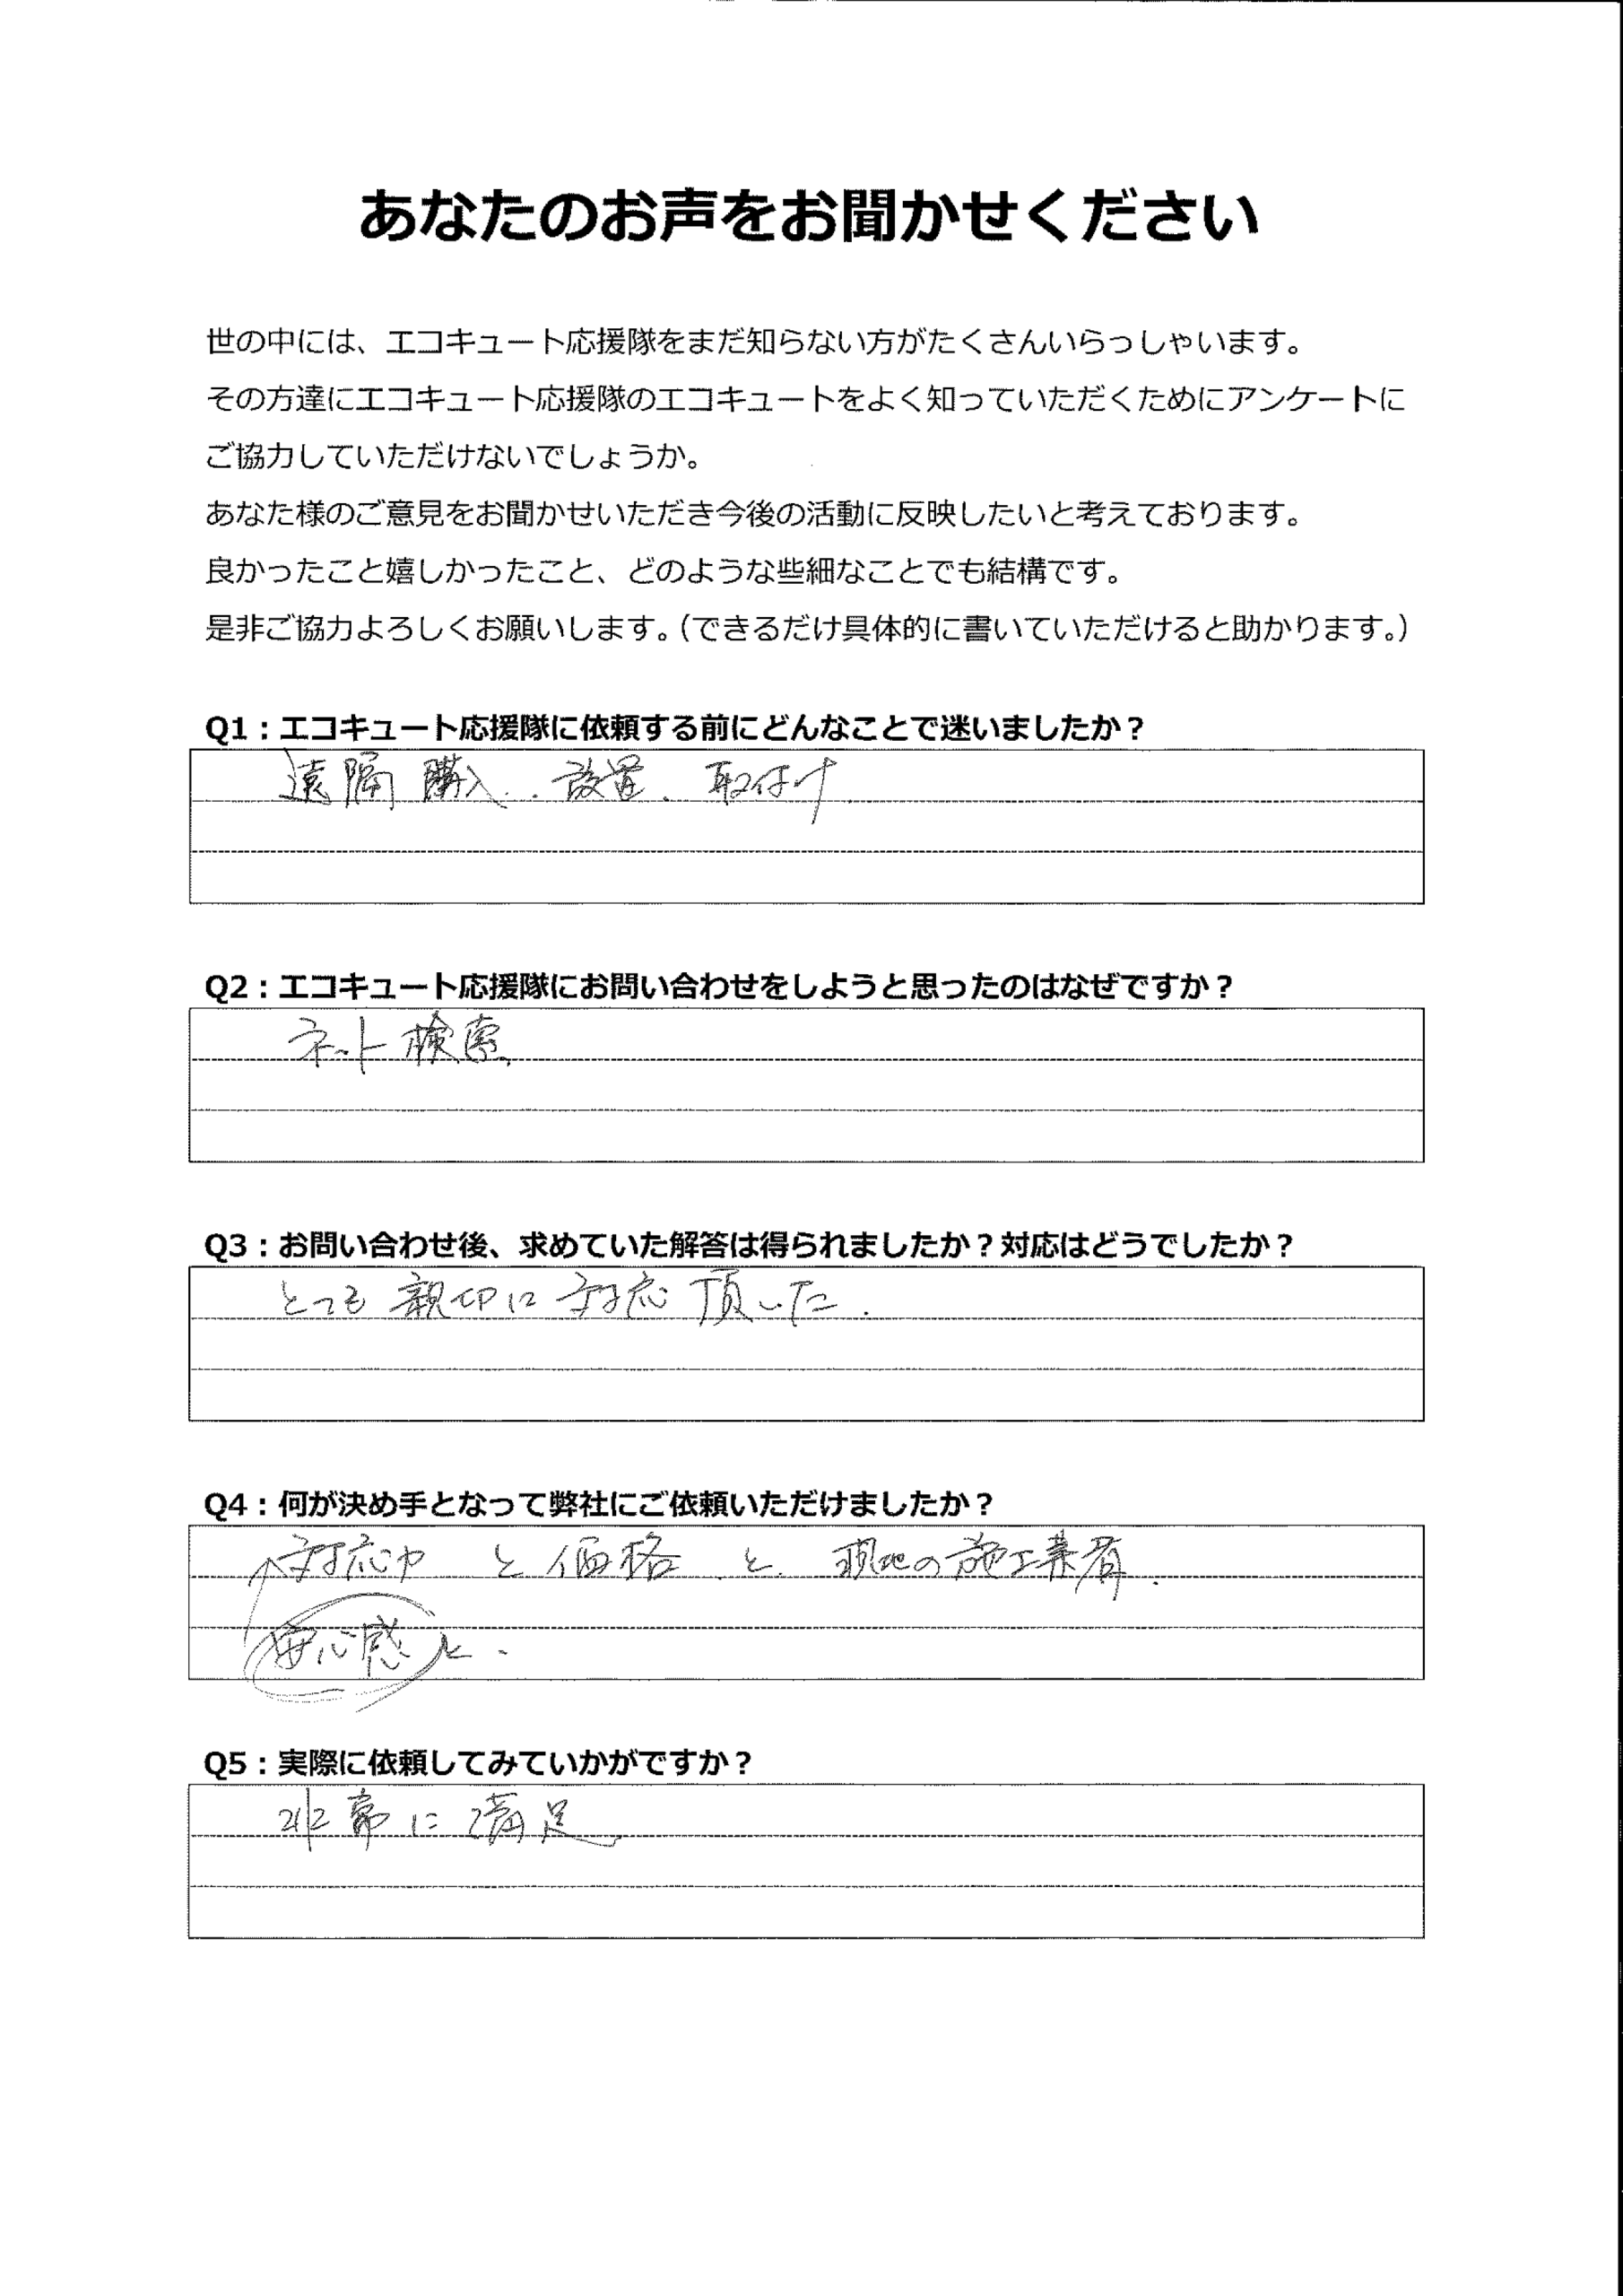 あなたのお声をお聞かせください
世の中には、エコキュート応援隊をまだ知らない方がたくさんいらっしゃいます。
その方達にエコキュート応援隊のエコキュートをよく知っていただくためにアンケートに
ご協力していただけないでしょうか。
あなた様のご意見をお聞かせいただき今後の活動に反映したいと考えております。
良かったこと嬉しかったこと、どのような些細なことでも結構です。
是非ご協力よろしくお願いします。（できるだけ具体的に書いていただけると助かります。）
Q1：エコキュート応援隊に依頼する前にどんなことで迷いましたか？
遠隔購入..放置.取付け
Q2：エコキュート応援隊にお問い合わせをしようと思ったのはなぜですか？
ネット検索、
Q3：お問い合わせ後、求めていた解答は得られましたか？対応はどうでしたか？
とても親切に対応頂いた.
Q4：何が決め手となって弊社にご依頼いただけましたか？
対応力と価格と現地の施工業者.
安心感と.
Q5：実際に依頼してみていかがですか？
非常に満足